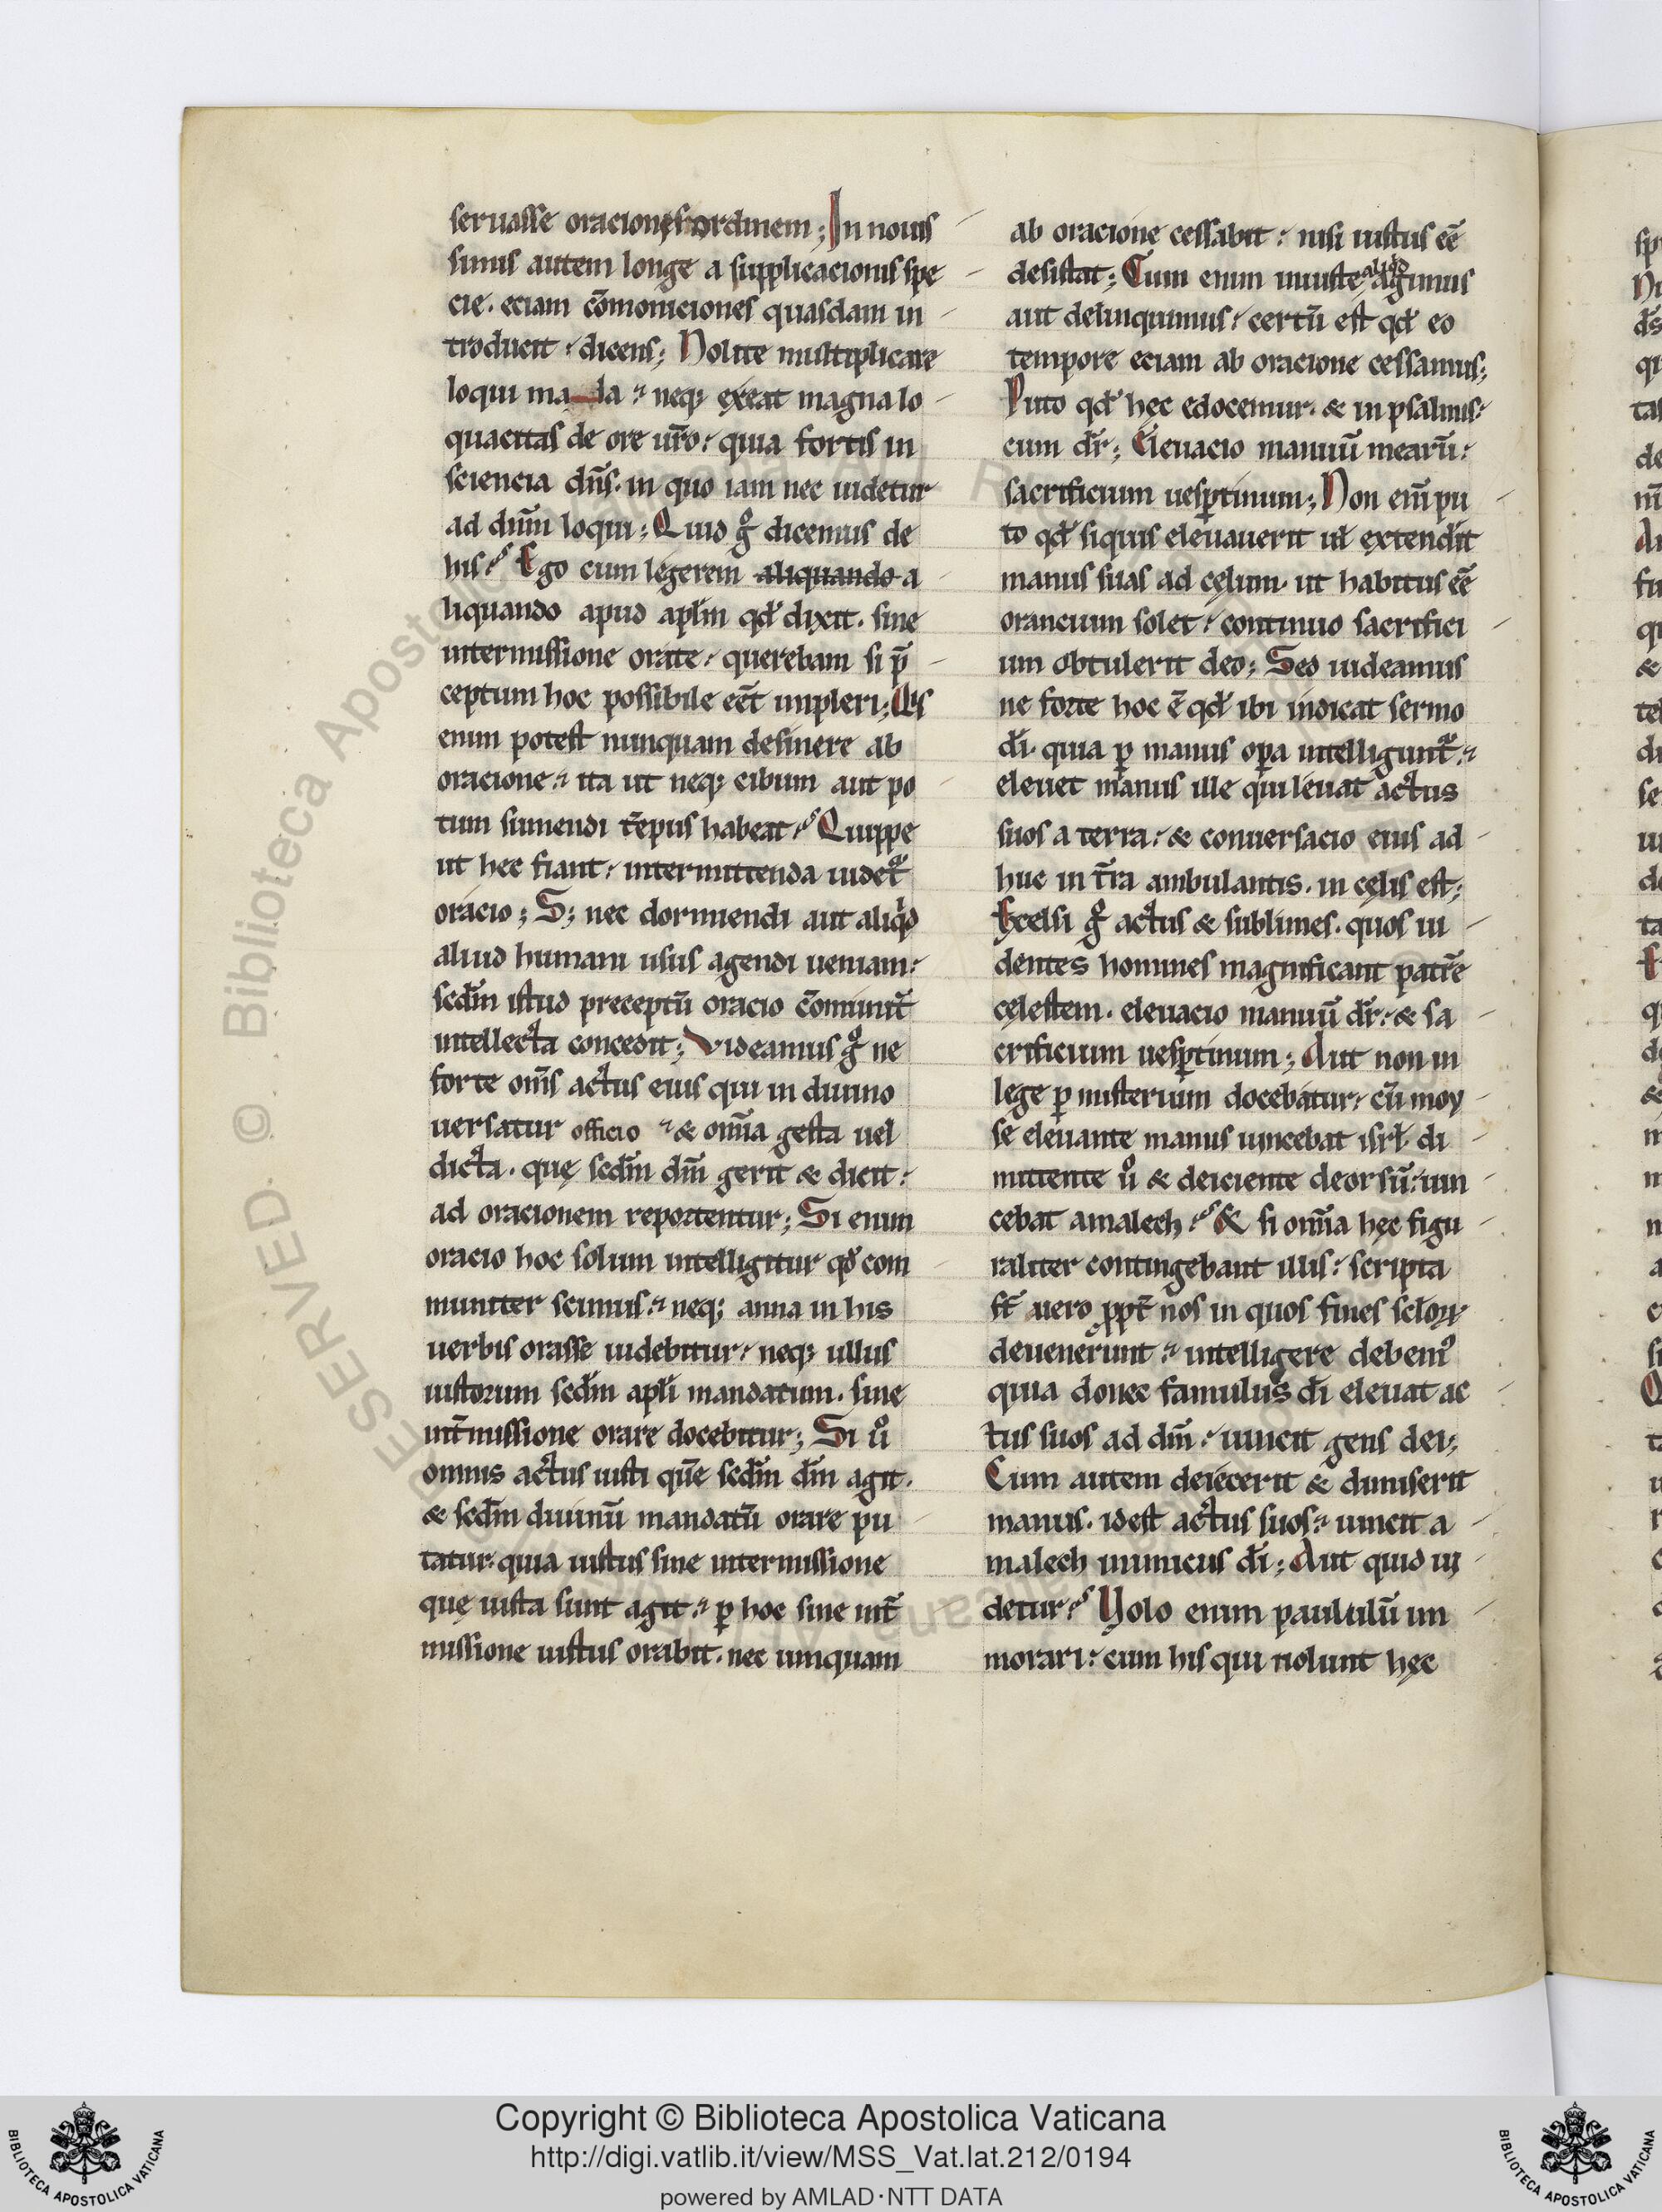 seruasse oracionis ordinem; In nouis
simis autem longe a supplicacionis spe
cie. eciam cōmoniciones quasdam in
troducit. dicens; Nolite multiplicare
loqui ma la neq; exeat magna lo
quacitas de ore ur̄o. quia fortis in
sciencia dn̄s. in quo iam nec uidetur
ad dn̄m loqui; Quid gͦ dicemus de
his? Ego cum legerem aliquando a
liquando apud apl̄m qd̄ dixit. sine
intermissione orate. querebam si p̄
ceptum hoc possibile eēt impleri; Qis
enim potest nunquam desinere ab
oracione. ita ut neq; cibum aut po
tum sumendi tēpus habeat? Quippe
ut hec fiant. intermittenda uidet᷑
oracio; S; nec dormiendi aut aliqͥd
aliud humani usus agendi ueniam.
scd̄m istud preceptū oracio cōmunit̄
intellecta concedit; Videamus gͦ ne
forte om̄s actus eius qui in diuino
uersatur officio & om̄ia gesta uel
dicta. quę scd̄m dm̄ gerit & dicit.
ad oracionem reportentur; Si enim
oracio hoc solum intelligitur qd̄ com
muniter scimus. neq; anna in his
uerbis orasse uidebitur. neq; ullus
iustorum scd̄m apl̄i mandatum. sine
int̄missione orare docebitur; Si uͦ
omnis actus iusti quē scd̄m dm̄ agit.
& scd̄m diuinū mandatū orare pu
tatur. quia iustus sine intermissione
quę iusta sunt agit. ꝑ hoc sine int̄
missione iustus orabit. nec unquam
ab oracione cessabit. nisi iustus eē
desistat; Cum enim iniuste aliqͥd agimus
aut delinquimus. certū est qd̄ eo
tempore eciam ab oracione cessamus;
Puto qd̄ hęc edocemur. & in psalmis.
cum dr̄; Eleuacio manuū mearū.
sacrificium uesꝑtinum; Non eni̅ pu
to qd̄ siquis eleuauerit uł extendit
manus suas ad cęlum. ut habitus eē
orancium solet. continuo sacrifici
um obtulerit deo; Sed uideamus
ne forte hoc ē qd̄ ibi indicat sermo
dī. quia ꝑ manus oꝑa intelligunt᷑.
eleuet manus ille qui leuat actus
suos a terra. & conuersacio eius ad
huc in t̄ra ambulantis. in cęlis est;
Excelsi gͦ actus & sublimes. quos ui
dentes homines magnificant patrē
cęlestem. eleuacio manuū dr̄. & sa
crificium uesꝑtinum; Aut non in
lege ꝑ misterium docebatur. cū moy
se eleuante manus uincebat isrł. di
mittente uͦ & deiciente deorsū. uin
cebat amalech? & si om̄ia hęc figu
raliter contingebant illis. scripta
st̄ uero ꝓpt̄ nos in quos fines scłoꝝ
deuenerunt. intelligere debemꝰ
quia donec famulus dī eleuat ac
tus suos ad dm̄. uincit gens dei;
Cum autem deiecerit & dimiserit
manus. idest actus suos. uincit a
malech inimicus dī; Aut quid ui
detur? Uolo enim paululū im
morari. cum his qui nolunt hęc
Copyright © Biblioteca Apostolica Vaticana
http://digi.vatlib.it/view/MSS_Vat.lat.212/0194
powered by AMLAD·NTT DATA